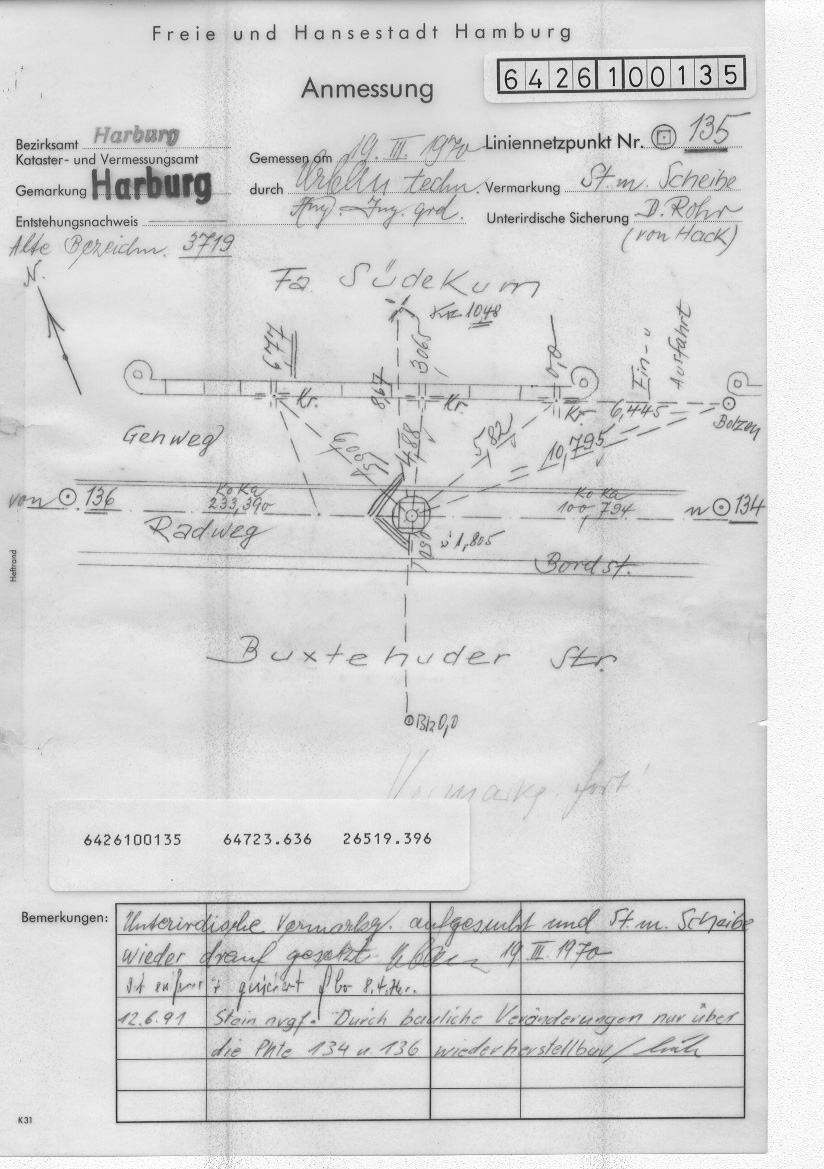 Freie und Hansestadt Hamburg
Anmessung
6426100135
Bezirksamt Harburg
Kataster- und Vermessungsamt
Gemarkung Harburg
Entstehungsnachweis
Alte Bezeichn. 3719
Gemessen am 19. III. 1970
durch techn.
Ang. Ing. grd.
Liniennetzpunkt Nr. 135
Vermarkung St. m. Scheibe
Unterirdische Sicherung D. Rohr
(von Hack)
N.
Fa. Südekum
10,48
7,79
8,67
3,065
0,0
Ein- u
Ausfahrt
Kr.
Kr.
Kr.
6,445
Bolzen
Gehweg
6,005
4,88
5,82
10,795
von 136
KoKa
233,390
KoKa
100,794
n 134
Radweg
7,290
ü 1,805
Bordst.
Heftrand
Buxtehuder Str.
Blz 0,0
Vermarkg. fort!
6426100135 64723.636 26519.396
Bemerkungen:
Unterirdische Vermarkg. aufgesucht und St. m. Scheibe
wieder drauf gesetzt. 19. III. 1970
12.6.91 Stein nvgf. Durch bauliche Veränderungen nur über
die Pkte 134 u. 136 wiederherstellbar/
K31